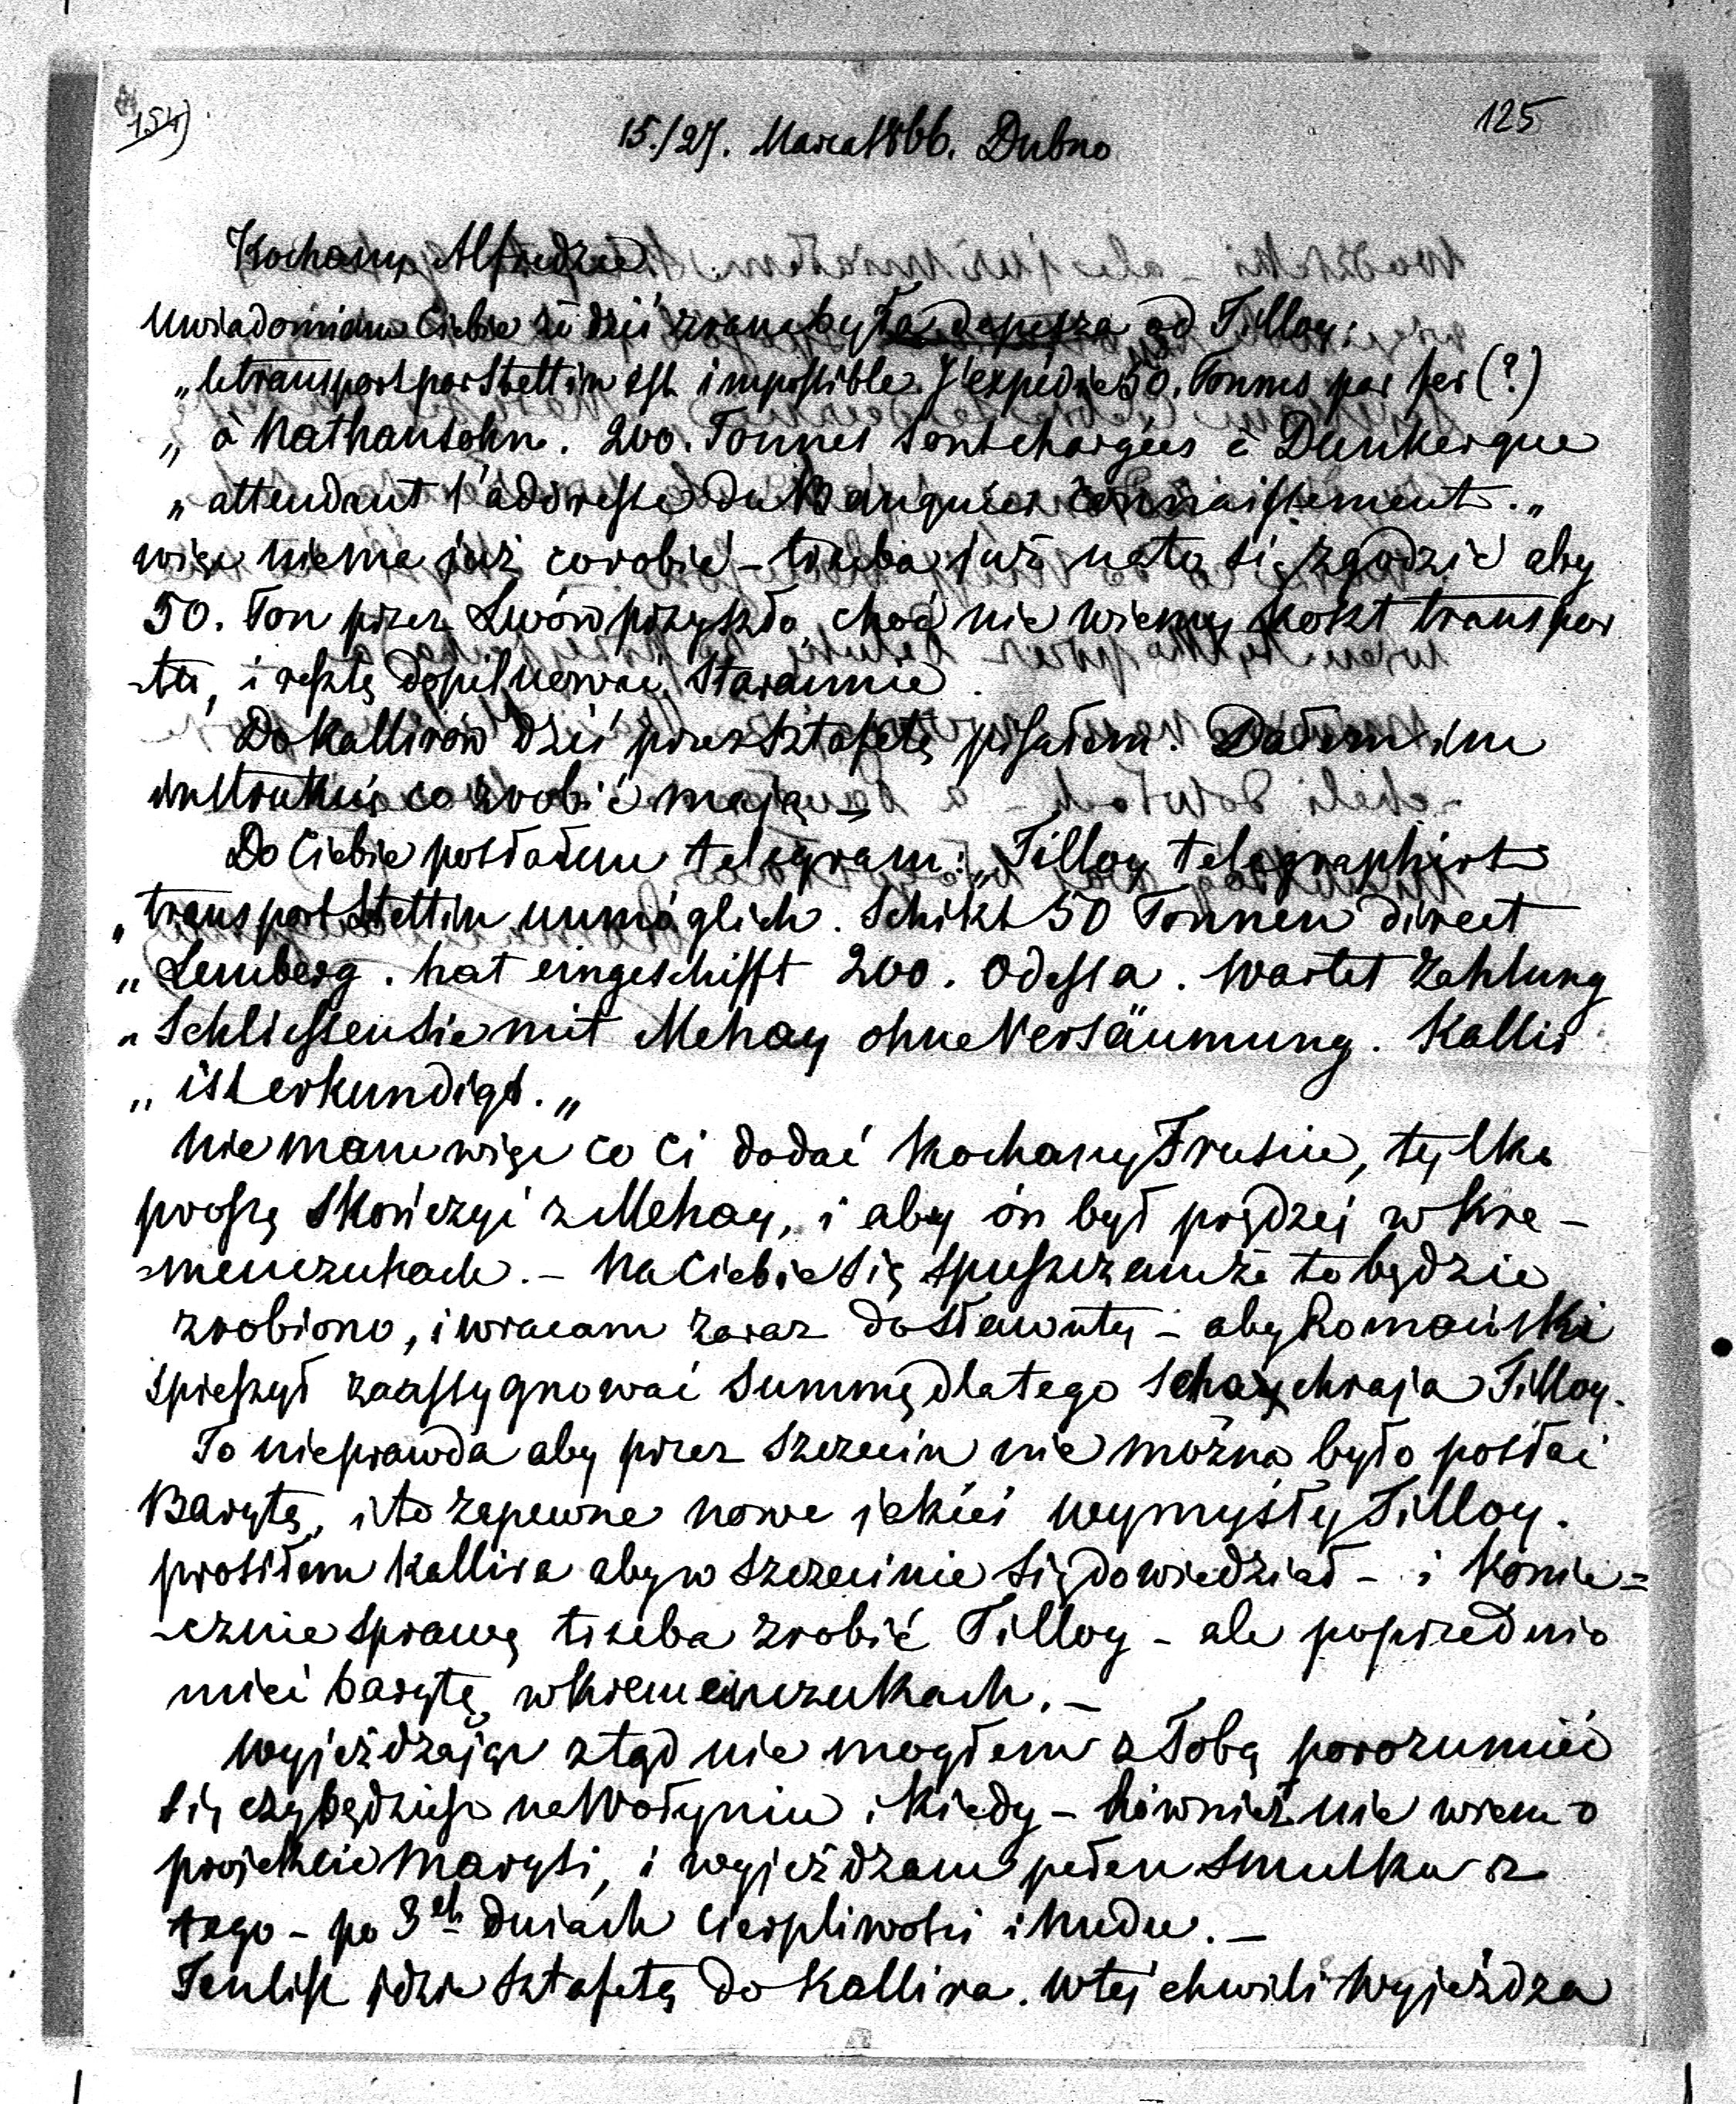 154)
125
15./27. Marca 1866. Dubno
Kochany Alfredzie
Uwiadomiam Ciebie że dziś zrana była depesza od Tilloy:
„le transport par Stettin est impossible. J'expédie 50. Tonnes par fer (?)
„ à Nathansohn. 200. Tonnes sont chargées à Dunkerque
„ attendant l'addresse du Banquier connaissement.„
więc niema już co robić – trzeba już na to się zgodzić aby
50. Ton przez Lwów przyszło, choć nie wiemy koszt transpor
-tu, i resztę dopilnować starannie.
Do Kallirów dziś przez sztafetę pisałem. Dałem im
instrukcię co zrobić mają –
Do Ciebie posłałem telegram: „Tilloy telegraphirt
„transport Stettin unmöglich. Schikt 50 Tonnen direct
„ Lemberg. hat eingeschifft 200. Odessa. Wartet Zahlung
„ Schliessen Sie mit Mehay ohne Versäumung. Kallir
„ ist erkundigt.„
Nie mam więc co Ci dodać kochany Frusiu, tylko
proszę skończyć z Mehay, i aby ón był prędzej w Kre-
-menczukach. – Na Ciebie się spuszczam że to będzie
zrobiono, i wracam zaraz do Sławuty – aby Romański
spieszył zaassygnować summę dla tego schaychraja Tilloy.
To nieprawda aby przez Szczecin nie można było posłać
Barytę, i to zapewne nowe jakieś wymysły Tilloy.
prosiłem Kallira aby w Szczecinie się dowiedział – i konie=
-cznie sprawę trzeba zrobić Tilloy – ale poprzednio
mieć barytę w Kremenczukach. –
Wyjeżdzając ztąd nie mogłem z Tobą porozumieć
się czy będziesz na Wołyniu i kiedy – również nie wiem o
projekcie Marysi, i wyjeżdzam pełen smutku z
tego – po 3ch dniach cierpliwości i nudu. –
Ten list idzie sztafetą do Kallira. W tej chwili wyjeżdza